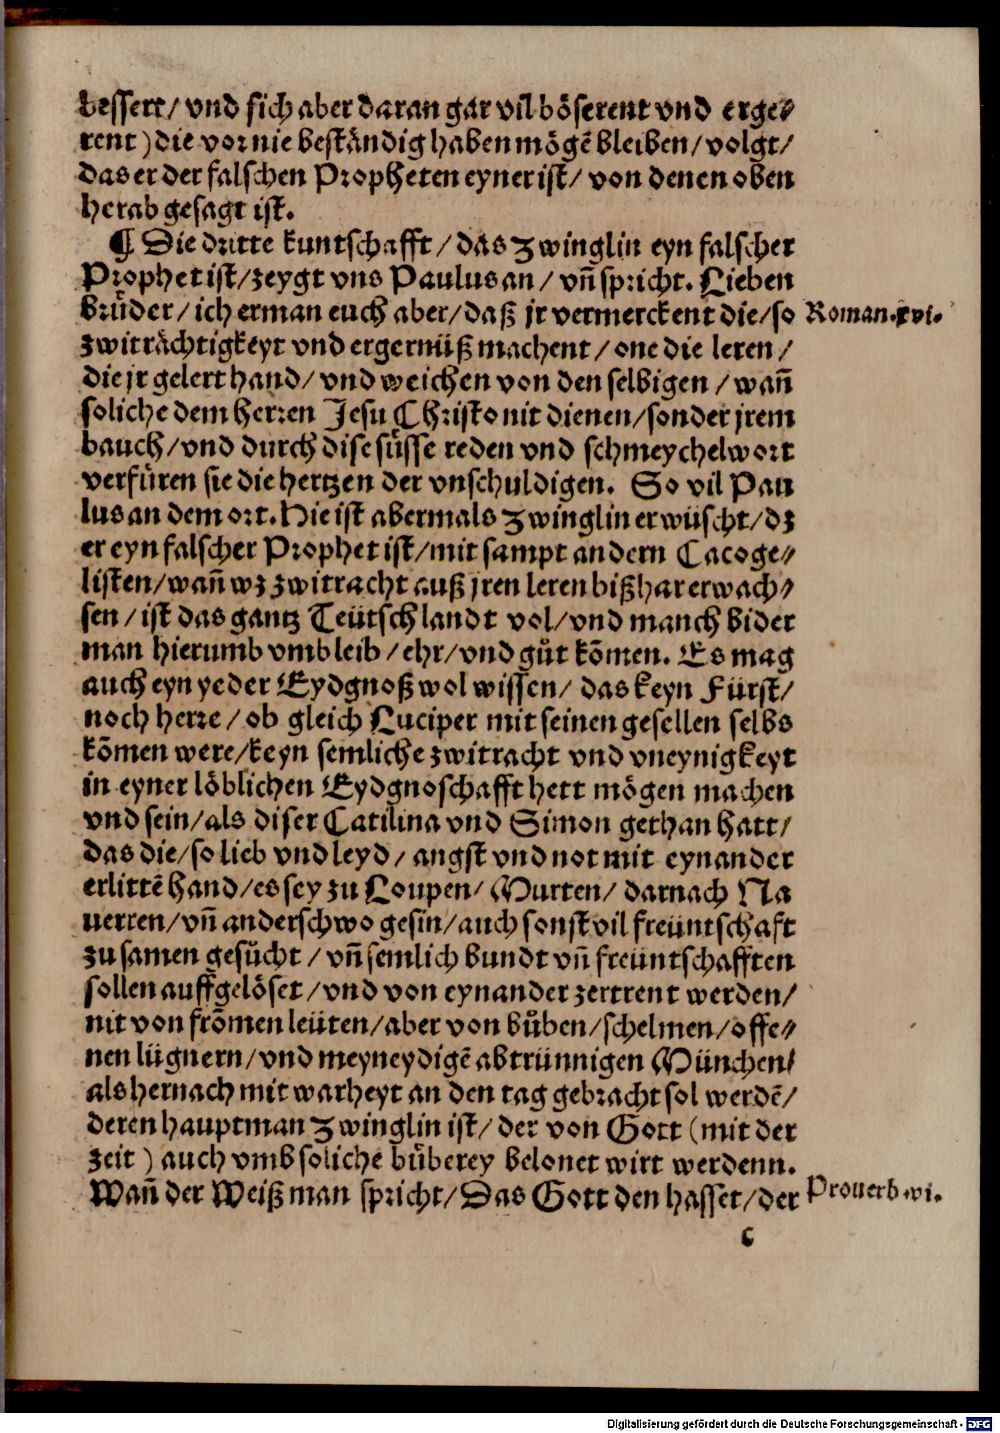 bessert/ vnd sich aber daran gar vil böserent vnd erge⸗
rent) die vor nie beständig haben mögē bleiben/ volgt/
das er der falschen Propheten eyner ist/ von denen oben
herab gesagt ist.
¶ Die dritte kuntschafft/ das Zwinglin eyn falscher
Prophet ist/ zeygt vns Paulus an/ vñ spricht. Lieben
brůder/ ich erman euch aber/ daß jr vermerckent die/ so Roman.xvi.
zwiträchtigkeyt vnd ergernüß machent/ one die leren/
die jr gelert hand/ vnd weichen von den selbigen/ wañ
soliche dem Herren Jesu Christo nit dienen/ sonder jrem
bauch/ vnd durch dise süsse reden vnd schmeychelwort
verfüren sie die hertzen der vnschuldigen. So vil Pau
lus an dem ort. Hie ist abermals Zwinglin erwüscht/ dz
er eyn falscher Prophet ist/ mit sampt andern Cacoge⸗
listen/ wañ wz zwitracht auß jren leren bißhar erwach⸗
sen/ ist das gantz Teütschlandt vol/ vnd manch bider
man hierumb vmb leib/ ehr/ vnd gůt kōmen. Es mag
auch eyn yeder Eydgnoß wol wissen/ das keyn Fürst/
noch herre/ ob gleich Luciper mit seinen gesellen selbs
kōmen were/ keyn semliche zwitracht vnd vneynigkeyt
in eyner löblichen Eydgnoschafft hett mögen machen
vnd sein/ als diser Catilina vnd Simon gethan hatt/
das die/ so lieb vnd leyd/ angst vnd not mit eynander
erlittē hand/ es sey zu Loupen/ Murten/ darnach Na
uerren/ vñ anderschwo gesin/ auch sonst vil freüntschaft
zu samen gesůcht/ vñ semlich bundt vñ freüntschafften
sollen auffgelöset/ vnd von eynander zertrent werden/
nit von frōmen leüten/ aber von bůben/ schelmen/ offe⸗
nen lügnern/ vnd meyneydigē abtrünnigen München/
als hernach mit warheyt an den tag gebracht sol werdē/
deren hauptman Zwinglin ist/ der von Gott (mit der
zeit) auch vmb soliche bůberey belonet wirt werdenn.
Wañ der Weiß man spricht/ Das Gott den hasset/ der Prouerb.vi.
c
Digitalisierung gefördert durch die Deutsche Forschungsgemeinschaft - DFG